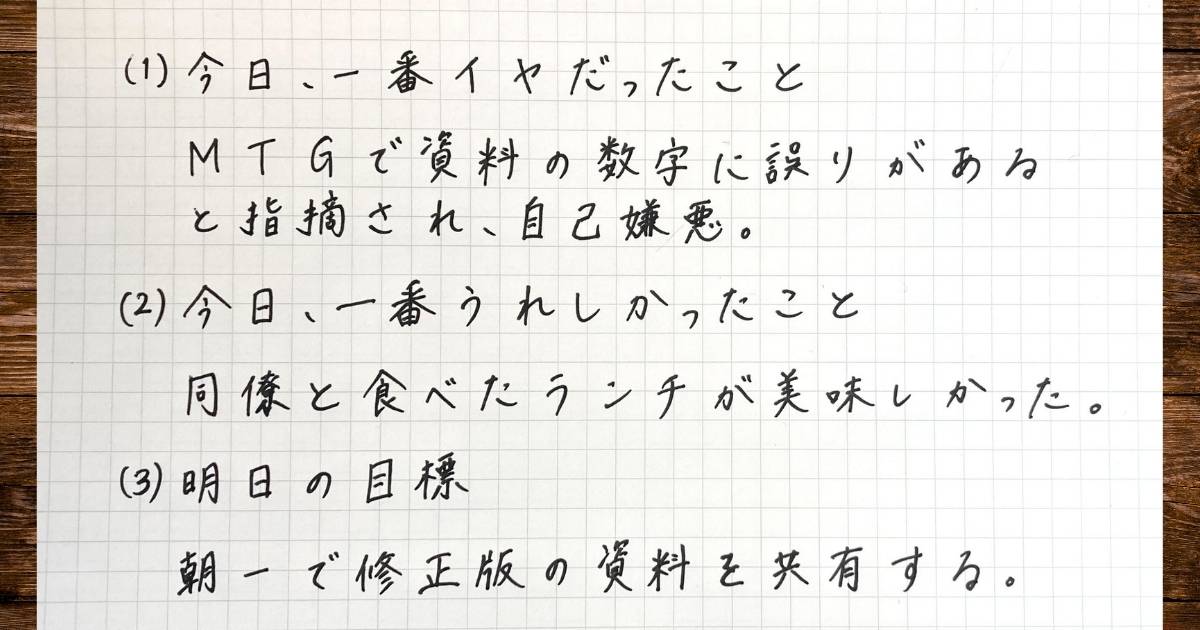 (1)今日、一番イヤだったこと
MTGで資料の数字に誤りがある
と指摘され、自己嫌悪。
(2)今日、一番うれしかったこと
同僚と食べたランチが美味しかった。
(3)明日の目標
朝一で修正版の資料を共有する。